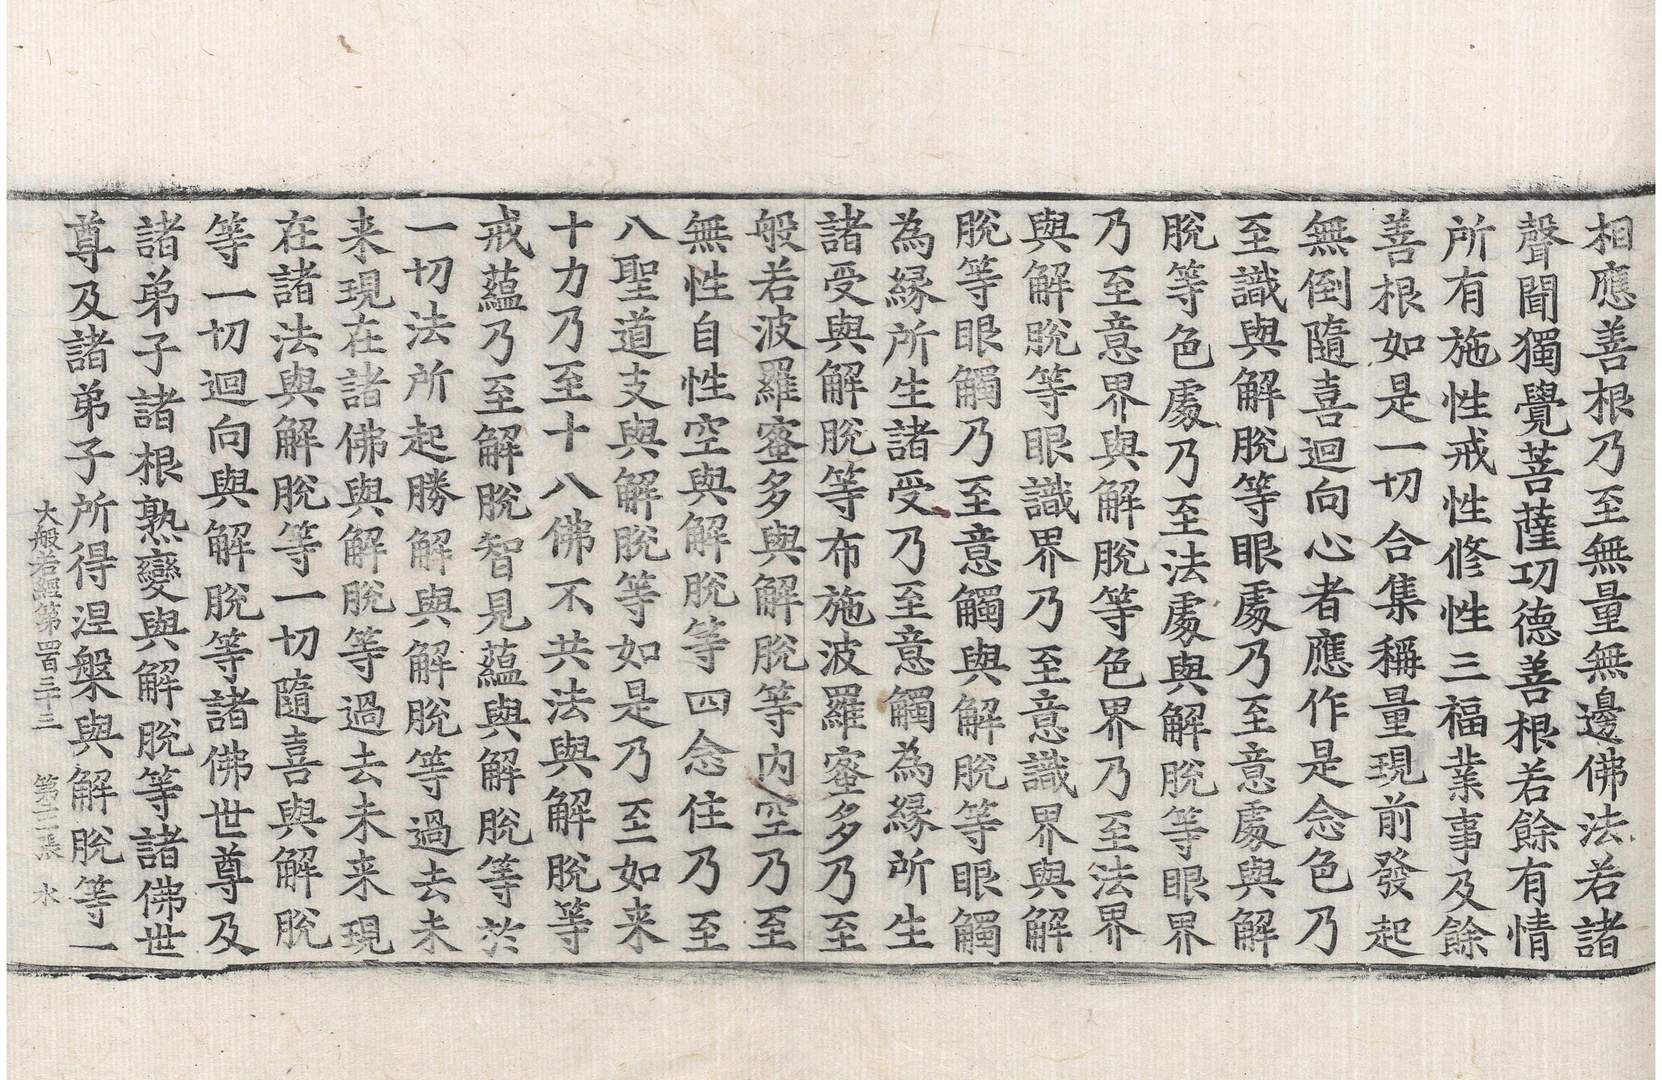 相應善根乃至無量無邊佛法若諸
聲聞獨覺菩薩功德善根若餘有情
所有施性戒性修性三福業事及餘
善根如是一切合集稱量現前發起
無倒隨喜迴向心者應作是念色乃
至識與解脫等眼處乃至意處與解
脫等色處乃至法處與解脫等眼界
乃至意界與解脫等色界乃至法界
與解脫等眼識界乃至意識界與解
脫等眼觸乃至意觸與解脫等眼觸
為緣所生諸受乃至意觸為緣所生
諸受與解脫等布施波羅蜜多乃至
般若波羅蜜多與解脫等內空乃至
無性自性空與解脫等四念住乃至
八聖道支與解脫等如是乃至如来
十力乃至十八佛不共法與解脫等
戒蘊乃至解脫智見蘊與解脫等於
一切法所起勝解與解脫等過去未
来現在諸佛與解脫等過去未来現
在諸法與解脫等一切隨喜與解脫
等一切迴向與解脫等諸佛世尊及
諸弟子諸根熟變與解脫等諸佛世
尊及諸弟子所得涅槃與解脫等一
大般若經第四百三十三 第十二張 水